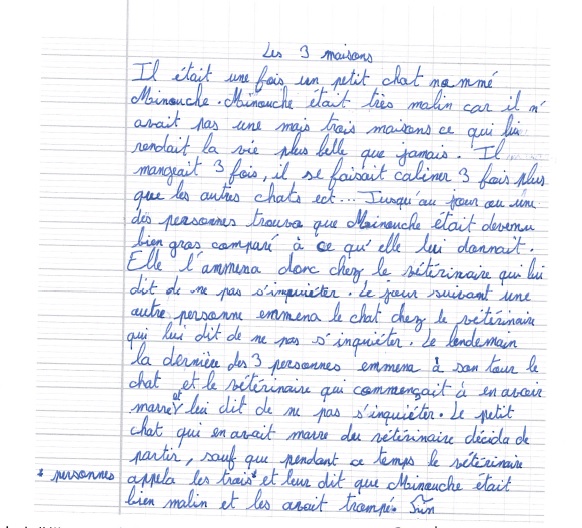 Les 3 maisons
Il était une fois un petit chat nommé
Minouche. Minouche était très malin car il n'
avait pas une mais trois maisons ce qui lui
rendait la vie plus belle que jamais. Il
mangeait 3 fois, il se faisait caliner 3 fois plus
que les autres chats ect... Jusqu'au jour ou une
des personnes trouva que Minouche était devenu
bien gras comparé à ce qu'elle lui donnait.
Elle l'ammena donc chez le vétérinaire qui lui
dit de ne pas s'inquiéter. Le jour suivant une
autre personne emmena le chat chez le vétérinaire
qui lui dit de ne pas s'inquiéter. Le lendemain
la dernière des 3 personnes emmena à son tour le
chat et le vétérinaire qui commençait à en avoir
marre et lui dit de ne pas s'inquiéter. Le petit
chat qui en avait marre du vétérinaire décida de
partir, sauf que pendant ce temps le vétérinaire
* personnes appela les trois* et leur dit que Minouche était
bien malin et les avait trompé. Fin